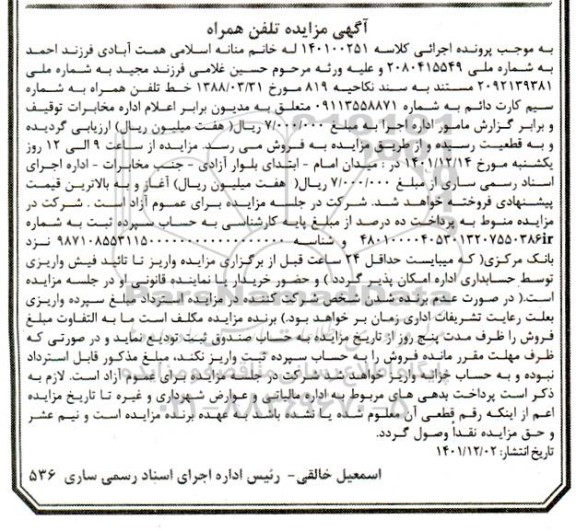 آگهی مزایده تلفن همراه
به موجب پرونده اجرائی کلاسه ۱۴۰۱۰۰۲۵۱ له خانم منانه اسلامی همت آبادی فرزند احمد
به شماره ملی ۲۰۸۰۴۱۵۵۴۹ و علیه ورثه مرحوم حسین غلامی فرزند مجید به شماره ملی
۲۰۹۲۱۳۹۳۸۱ مستند به سند نکاحیه ۸۱۹ مورخ ۱۳۸۸/۰۳/۳۱ خط تلفن همراه به شماره
سیم کارت دائم به شماره ۰۹۱۱۳۵۵۸۸۷۱ متعلق به مدیون برابر اعلام اداره مخابرات توقیف
و برابر گزارش مامور اداره اجرا به مبلغ ۷/۰۰۰/۰۰۰ ریال( هفت میلیون ریال) ارزیابی گردیده
و به قطعیت رسیده و از طریق مزایده به فروش می رسد. مزایده از ساعت ۹ الی ۱۲ روز
یکشنبه مورخ ۱۴۰۱/۱۲/۱۴ در : میدان امام - ابتدای بلوار آزادی - جنب مخابرات - اداره اجرای
اسناد رسمی ساری از مبلغ ۷/۰۰۰/۰۰۰ ریال( هفت میلیون ریال) آغاز و به بالاترین قیمت
پیشنهادی فروخته خواهد شد. شرکت در جلسه مزایده برای عموم آزاد است . شرکت در
مزایده منوط به پرداخت ده درصد از مبلغ پایه کارشناسی به حساب سپرده ثبت به شماره
نزد و شناسه
بانک مرکزی( که میبایست حداقل ۲۴ ساعت قبل از برگزاری مزایده واریز تا تائید فیش واریزی
توسط حسابداری اداره امکان پذیر گردد ) و حضور خریدار یا نماینده قانونی او در جلسه مزایده
است.( در صورت عدم برنده شدن شخص شرکت کننده در مزایده استرداد مبلغ سپرده واریزی
بعلت رعایت تشریفات اداری زمان بر خواهد بود.) برنده مزایده مکلف است ما به التفاوت مبلغ
فروش را ظرف مدت پنج روز از تاریخ مزایده به حساب صندوق ثبت تودیع نماید و در صورتی که
ظرف مهلت مقرر مانده فروش را به حساب سپرده ثبت واریز نکند، مبلغ مذکور قابل استرداد
نبوده و به حساب خزانه واریز خواهد شد شرکت در جلسه مزایده برای عموم آزاد است. لازم به
ذکر است پرداخت بدهی های مربوط به اداره مالیاتی و عوارض شهرداری و غیره تا تاریخ مزایده
اعم از اینکه رقم قطعی آن معلوم شده یا نشده باشد به عهده برنده مزایده است و نیم عشر
و حق مزایده نقداً وصول گردد.
تاریخ انتشار: ۱۴۰۱/۱۲/۰۲
اسمعیل خالقی- رئیس اداره اجرای اسناد رسمی ساری ۵۳۶